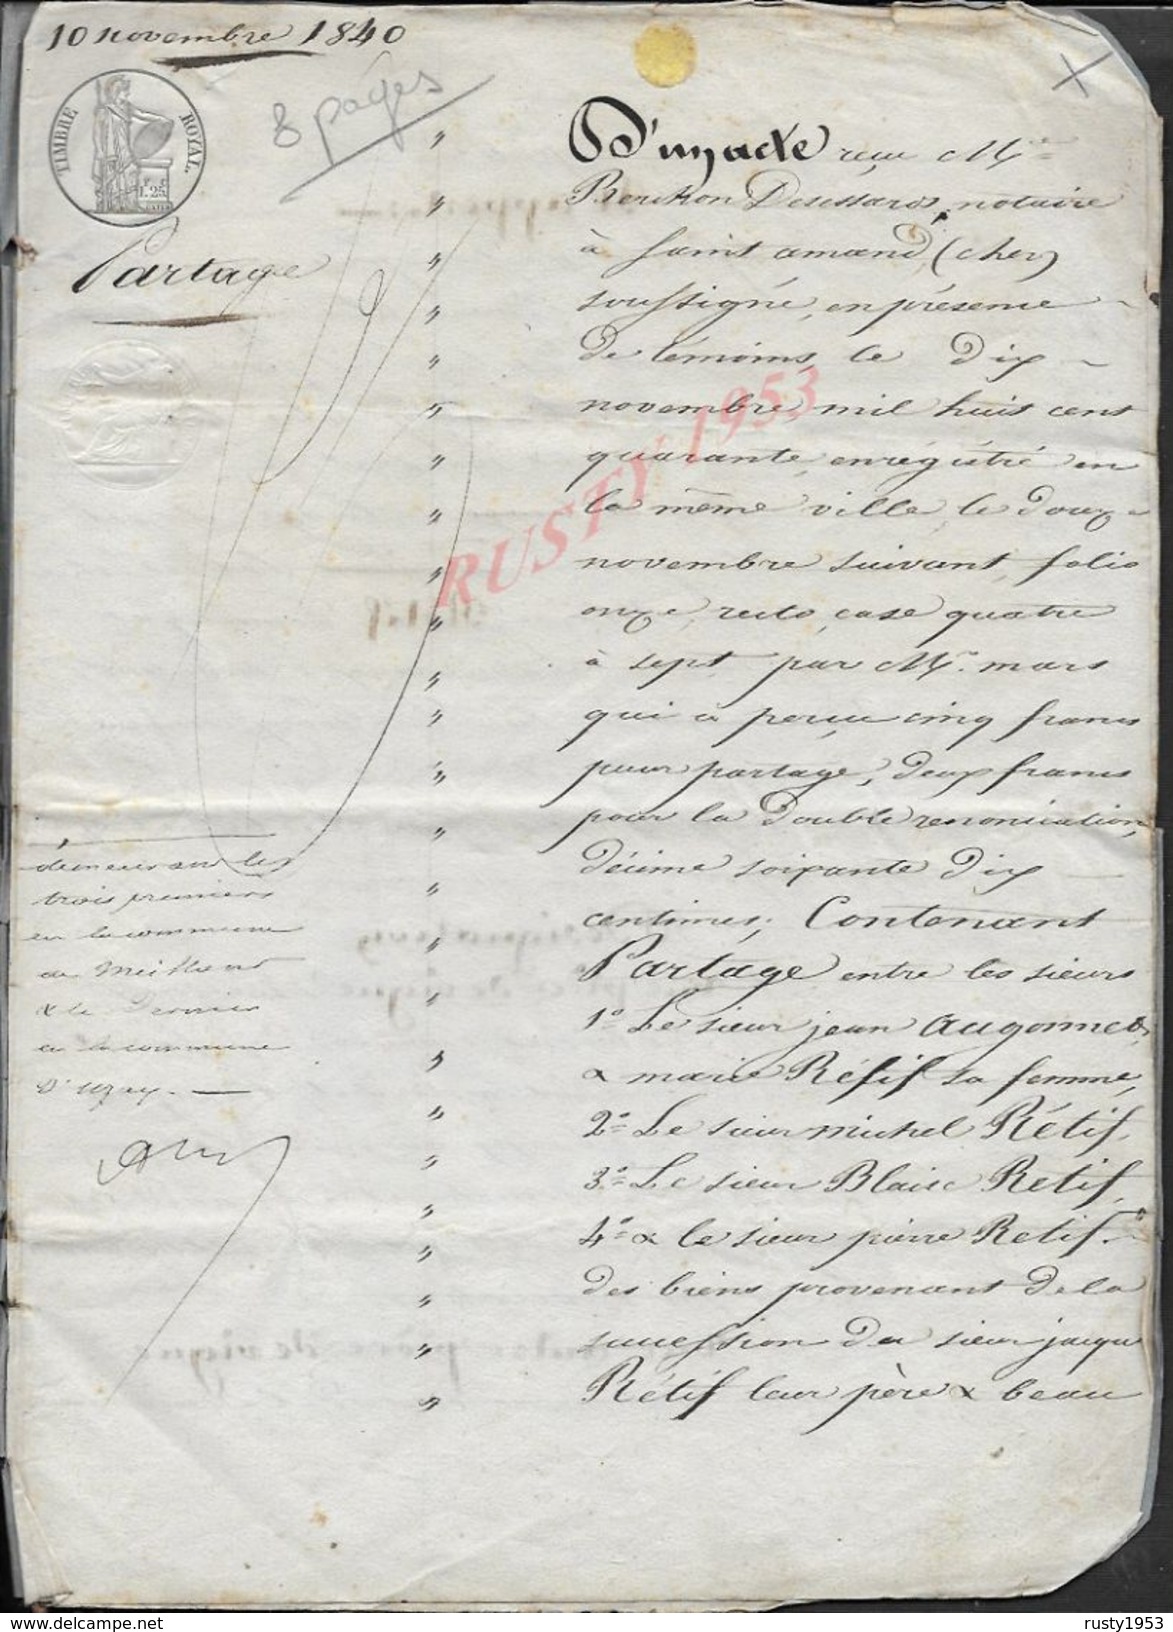 10 novembre 1840
8 pages
TIMBRE ROYAL
1F. 25C.
Partage
D'un acte reçu Me
Berchon Desessards, notaire
à Saint amand, (cher)
soussigné, en présence
de témoins, le Dix
novembre, mil huit cent
quarante, enrégistré en
la même ville, le douze
novembre suivant, folio
onze, recto, case quatre
à sept par Mr. mars
qui a perçu cinq francs
pour partage, deux francs
pour la Double renonciation,
Décime soixante Dix
centimes, Contenant
Partage entre les sieurs
1° Le sieur jean Augonnet,
& marie Rétif sa femme,
2° Le sieur michel Rétif,
3° Le sieur Blaise Retif,
4° & le sieur pierre Retif.
des biens provenant de la
succession du sieur jacques
Rétif leur père & beau
demeurant les
trois premiers
en la commune
de Meillant
& le Dernier
en la commune
D'uzay.
RUSTY 1953
rusty1953